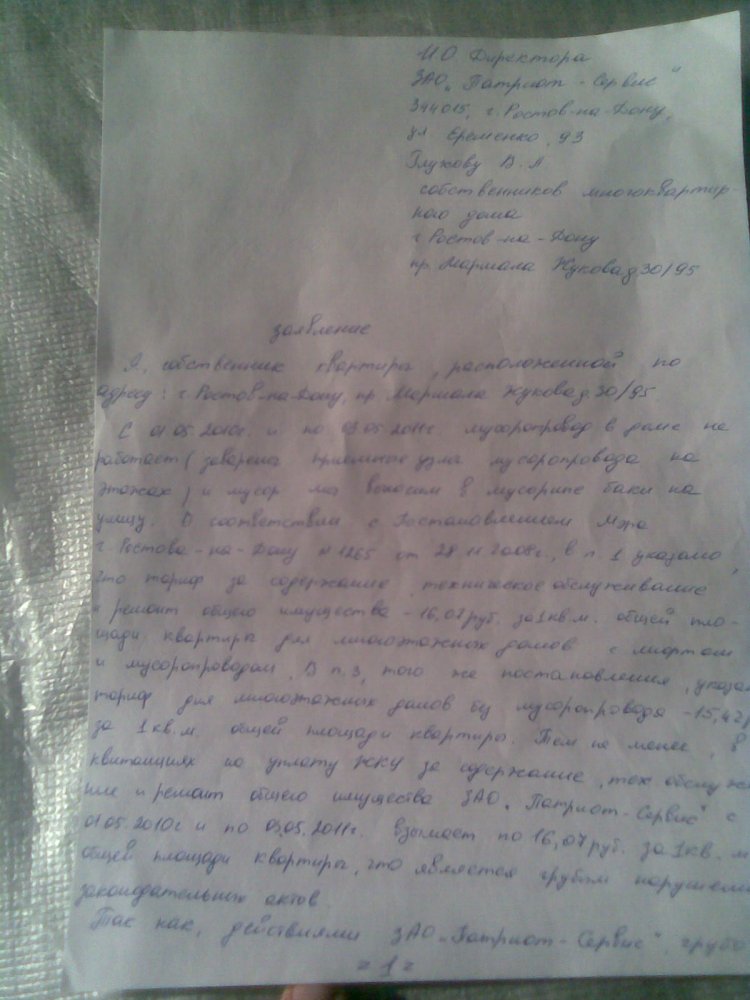 ИО Директора
ЗАО „Патриот - Сервис"
344015, г. Ростов-на-Дону,
ул. Еременко, 93
Глухову В. А.
собственников многоквартир-
ного дома
г Ростов-на-Дону
пр. Маршала Жукова д 30/95
заявление
Я, собственник квартиры, расположенной по
адресу: г. Ростов-на-Дону, пр. Маршала Жукова д 30/95.
С 01.05.2010г. и по 03.05.2011г. мусоропровод в доме не
работает (заварены приемные узла мусоропровода на
этажах) и мусор мы выносим в мусорные баки на
улицу. В соответствии с Постановлением Мэра
г. Ростова-на-Дону № 1265 от 28.11.2008г., в п. 1 указано,
что тариф за содержание, техническое обслуживание
и ремонт общего имущества - 16,07 руб. за 1 кв. м. общей пло-
щади квартиры для многоэтажных домов с лифтом
и мусоропроводом. В п. 3, того же постановления, указан
тариф для многоэтажных домов без мусоропровода - 15,42
за 1 кв. м. общей площади квартиры. Тем не менее, в
квитанциях на уплату ЖКУ за содержание, тех обслужи
ние и ремонт общего имущества ЗАО „Патриот-Сервис" с
01.05.2010г и по 03.05.2011г. взымает по 16,07 руб. за 1 кв. м
общей площади квартиры, что является грубым нарушени
законодательных актов.
Так как, действиями ЗАО „Патриот-Сервис", грубо
- 1 -